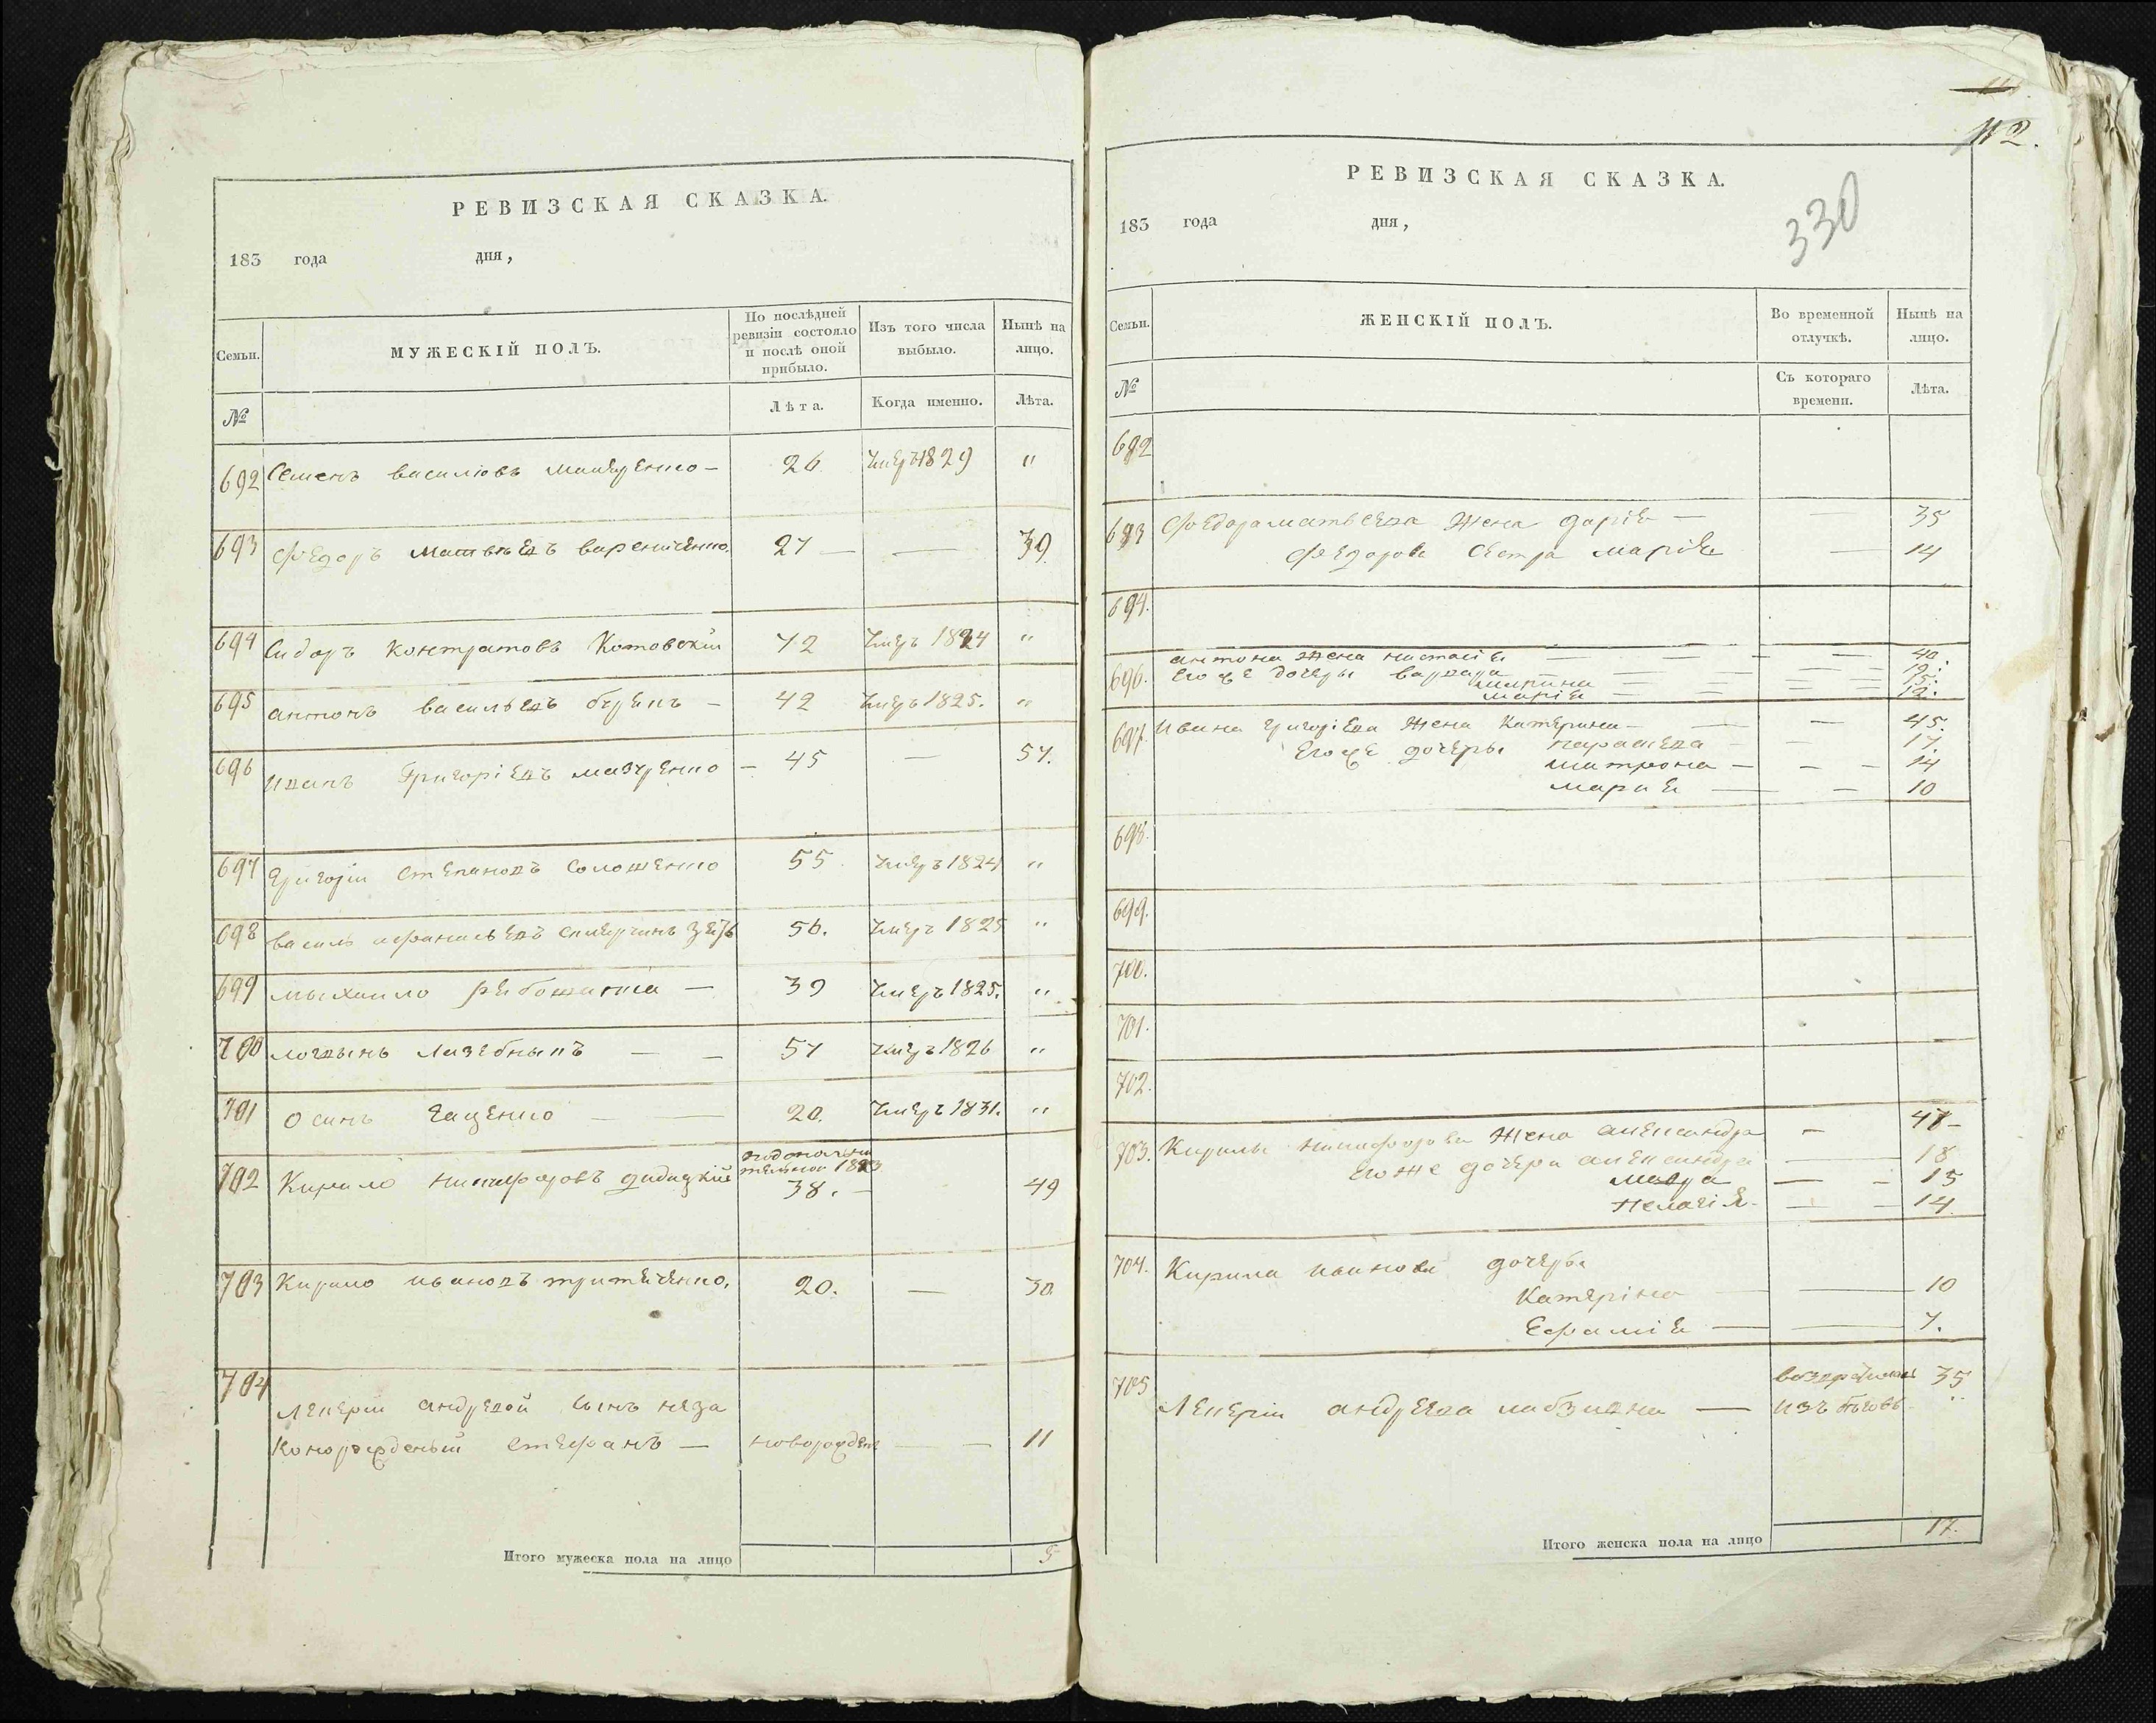 РЕВИЗСКАЯ СКАЗКА.
183 года дня,
Семьи. МУЖЕСКІЙ ПОЛЪ. По послѣдней ревизіи состояло и послѣ оной прибыло. Изъ того числа выбыло. Нынѣ на лицо.
№ Лѣта. Когда именно. Лѣта.
692 Семенъ василювъ — 26 1829 "
693 Федоръ Матвѣевъ 27 — — 39.
694 Сидоръ Контратовъ Котовскій 72 1824 "
695 антонъ васильевъ — 42 1825. "
696 иванъ Григоріевъ мазуренко — 45 — 57.
697 Григорій Степановъ Соломенко 55 1824 "
698 василь 56. 1825 "
699 мыхаило — 39 1825. "
700 логвынъ лазебныкъ — — 57 1826 "
701 Осипъ — — 20. 1831. "
702 Кирило никифоровъ дидицкій 38. — 49
703 Кирило ивановъ 20. — 30.
704
андревой сынъ неза
конорожденый стефанъ — новорожден — — 11
Итого мужеска пола на лицо 5
112.
РЕВИЗСКАЯ СКАЗКА.
330
183 года дня,
Семьи. ЖЕНСКІЙ ПОЛЪ. Во временной отлучкѣ. Нынѣ на лицо.
№ Съ котораго времени. Лѣта.
692
693 Федора матвеева Жена дарія — — 35
Федорова Сестра марія — 14
694.
696. антона жена настасія — — — — 40.
Его же дочеры варвара
марина — — — 15.
марія — — — 12.
697. ивана григоріева Жена Катерина — — — 45.
Его же дочеры парасева — — 17.
матрона — — — 14
марія — — 10
698.
699.
700.
701.
702.
703. Кирилы никифорова Жена александра — 47 —
Его же дочери александра — 18
мавра — — 15
пелагія — — — 14
704. Кирила иванова дочеры
Катеріна — — 10
Ефимія — — 7.
705 андреева — 35
изъ бѣговъ
Итого женска пола на лицо 17.